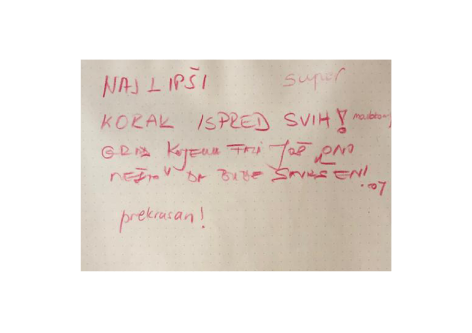 NAJLIPŠI super
KORAK ISPRED SVIH!
GRAD KOJEMU FALI JOŠ ONO
NEŠTO DA BUDE SAVRŠENI
prekrasan!